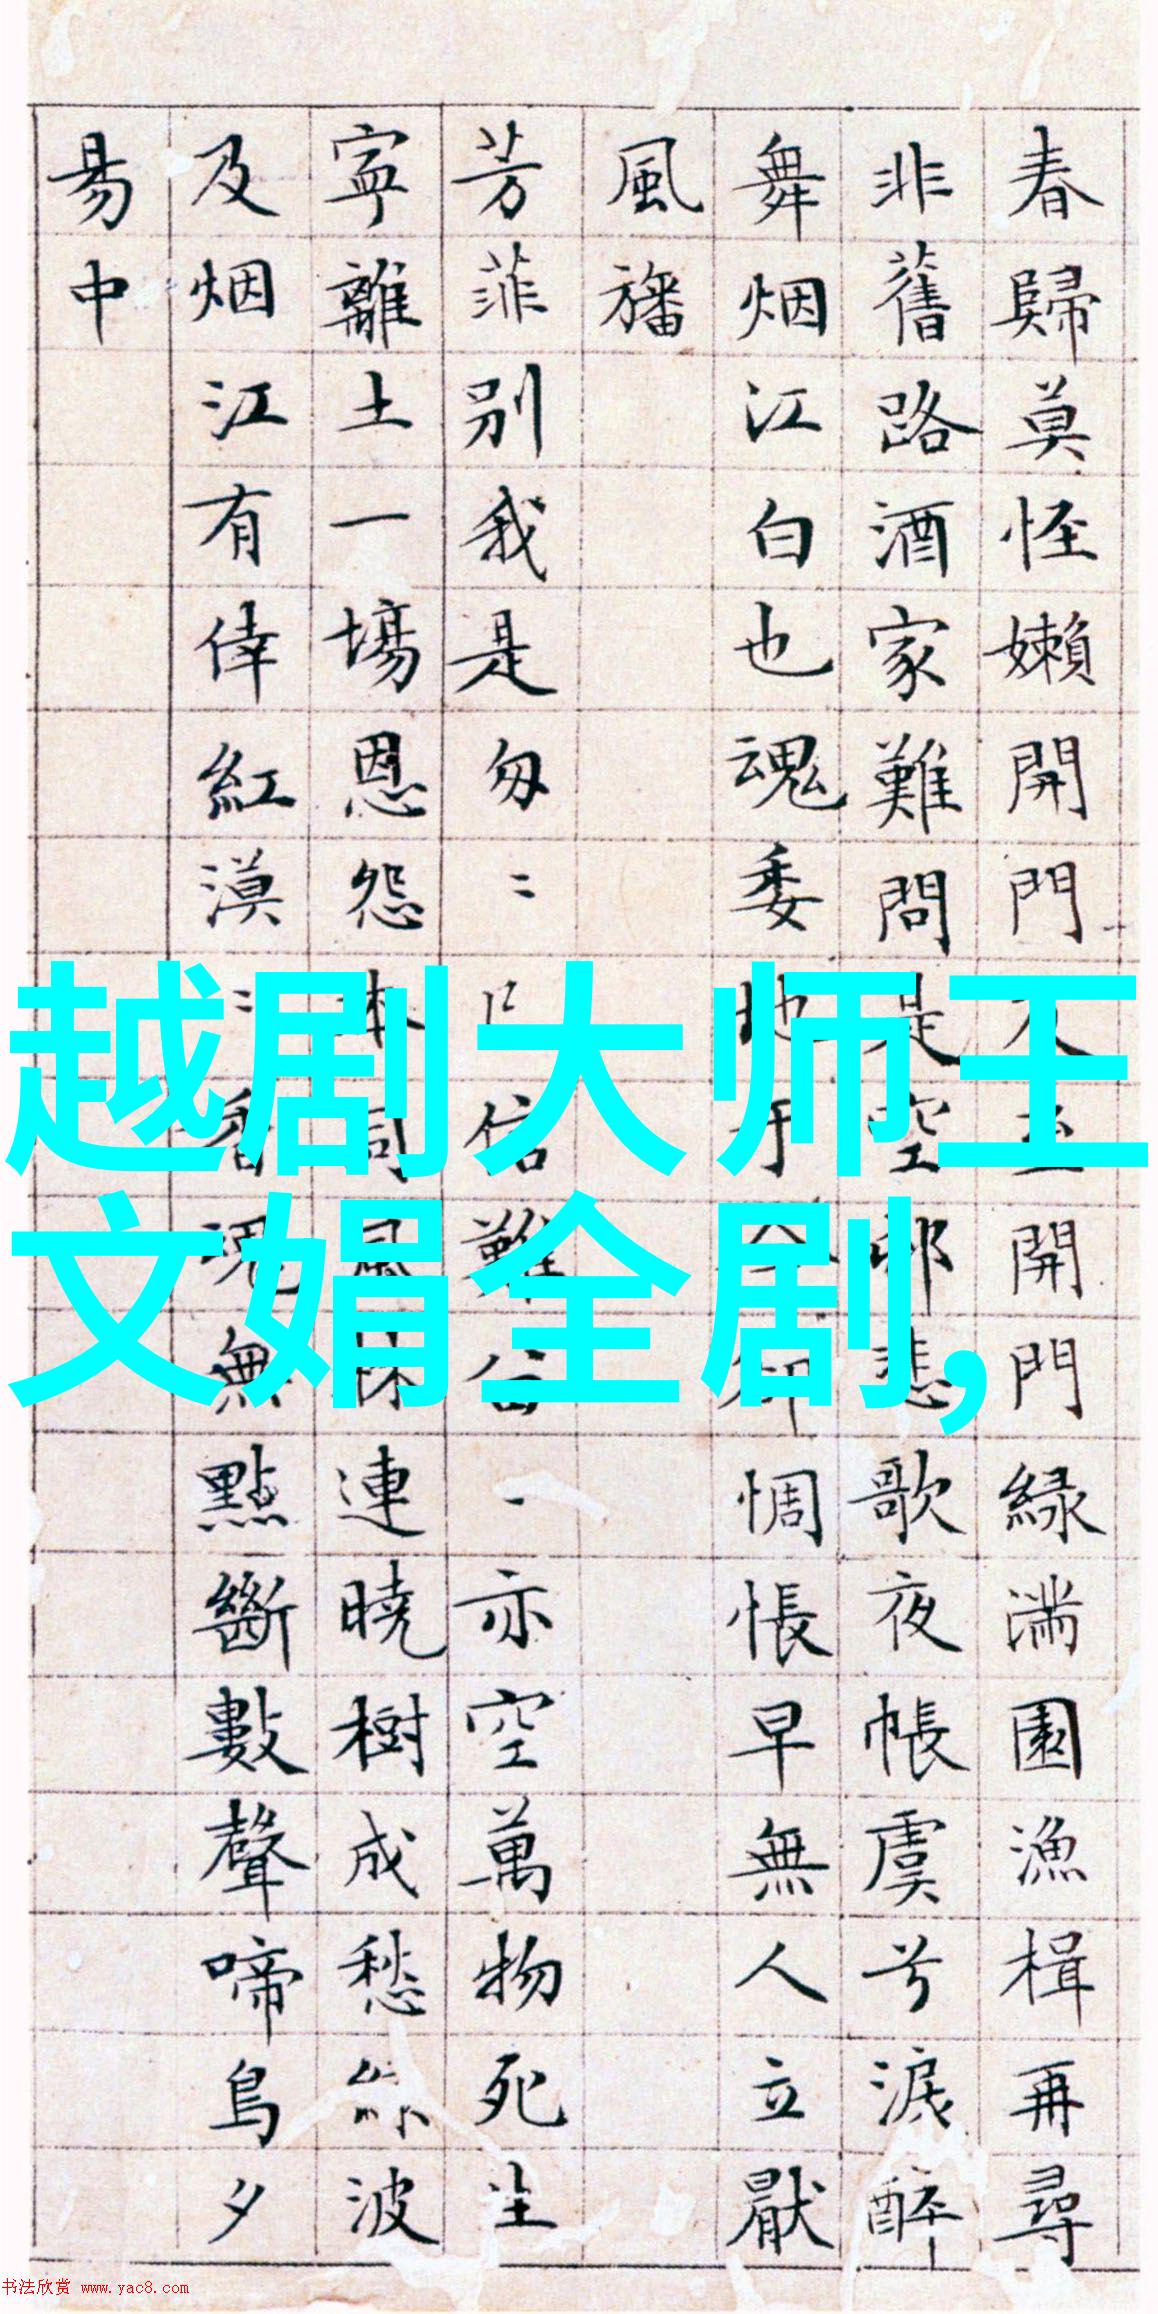 春歸莫怪嬾開門及至開門緑滿園漁楫再尋
非舊路酒家難問是空邨悲歌夜帳虞兮淚醉
舞烟江白也魂委地于今卻惆悵早無人立厭
風旛
芳菲別我是匆〻信難亦空萬物死生
寧離土一場恩怨本同風株連曉樹成愁緑波
及烟江有倖紅漠〻香魂無點斷數聲啼鳥夕
昜中
越剧大师王
文娟全剧,
书法欣赏 www.yac8.com